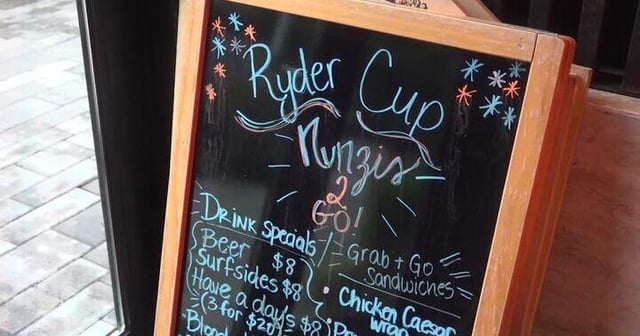 Ryder Cup
Nunzis
2
GO!
Drink Specials
Beer $8
Surfsides $8
Have a days $8
(3 for $20)
Grab + Go
Sandwiches
Chicken Caesar
wrap